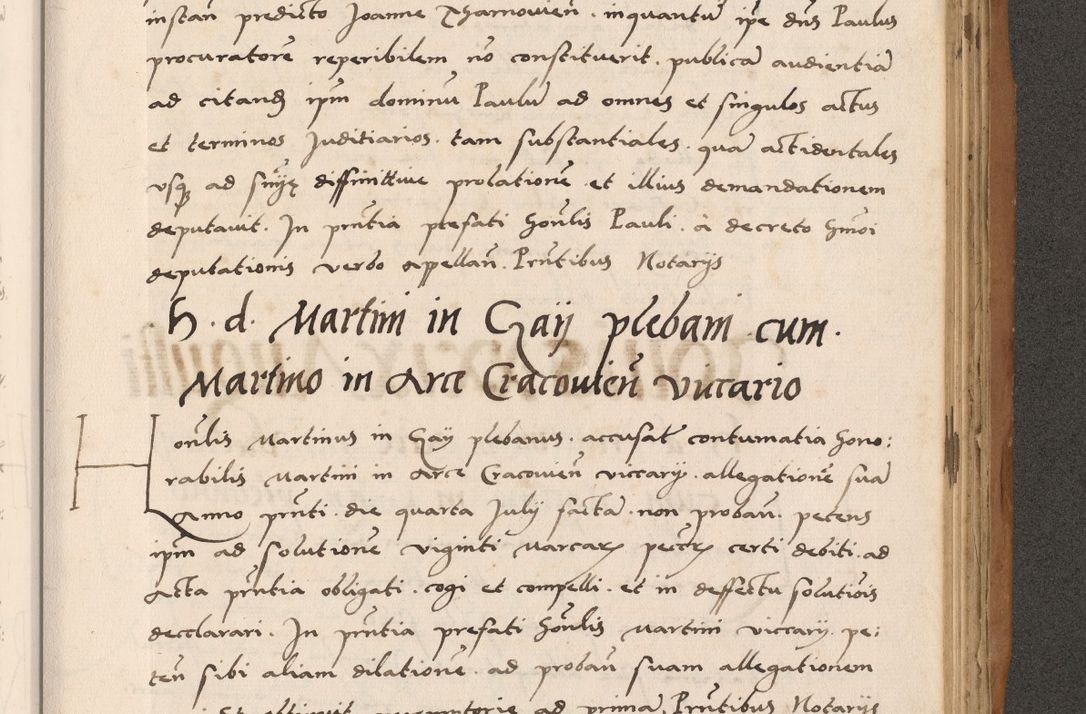 instan predicto Joanne Tharnovien̄ . inquantū ip̄e dn̄s Paulus
procuratorē reperibilem nō constituerit . publicā audientiā
ad citand ip̄m dominū Paulū ad omnes et singulos actus
et terminos Juditiarios . tam substantiales . quā actidentales
vsq ad diffinitiue probationē et illius demandationem
deputauit . In pn̄tia prefati hon̄lis Pauli . à decreto hm̄oi
deputationis verbo apellan̄ . Pn̄tibus Notarijs
H . d . Martini in Gaij plebani cum .
Martino in Arce Cracovien̄ viccario
Hon̄lis Martinus in Gaij plebanus . accusat contumatiā hono:
rabilis Martini in Arce Cracovien̄ viccarij . allegationē suā
Anno pn̄ti . die quarta Julij factā . non proban̄ . petens
ip̄m ad solutionē viginti Marcarꝝ pecc̄rꝝ certi debiti . ad
Acta pn̄tia obligati . cogi et compelli . et in deffectu solutiōis
decclarari . In pn̄tia prefati hon̄lis Martini viccarij . pe:
ten̄ sibi aliam dilationē . ad proban̄ suam allegationem
Et obtinuit peremptorie ad primā . Pn̄tibus Notarijs